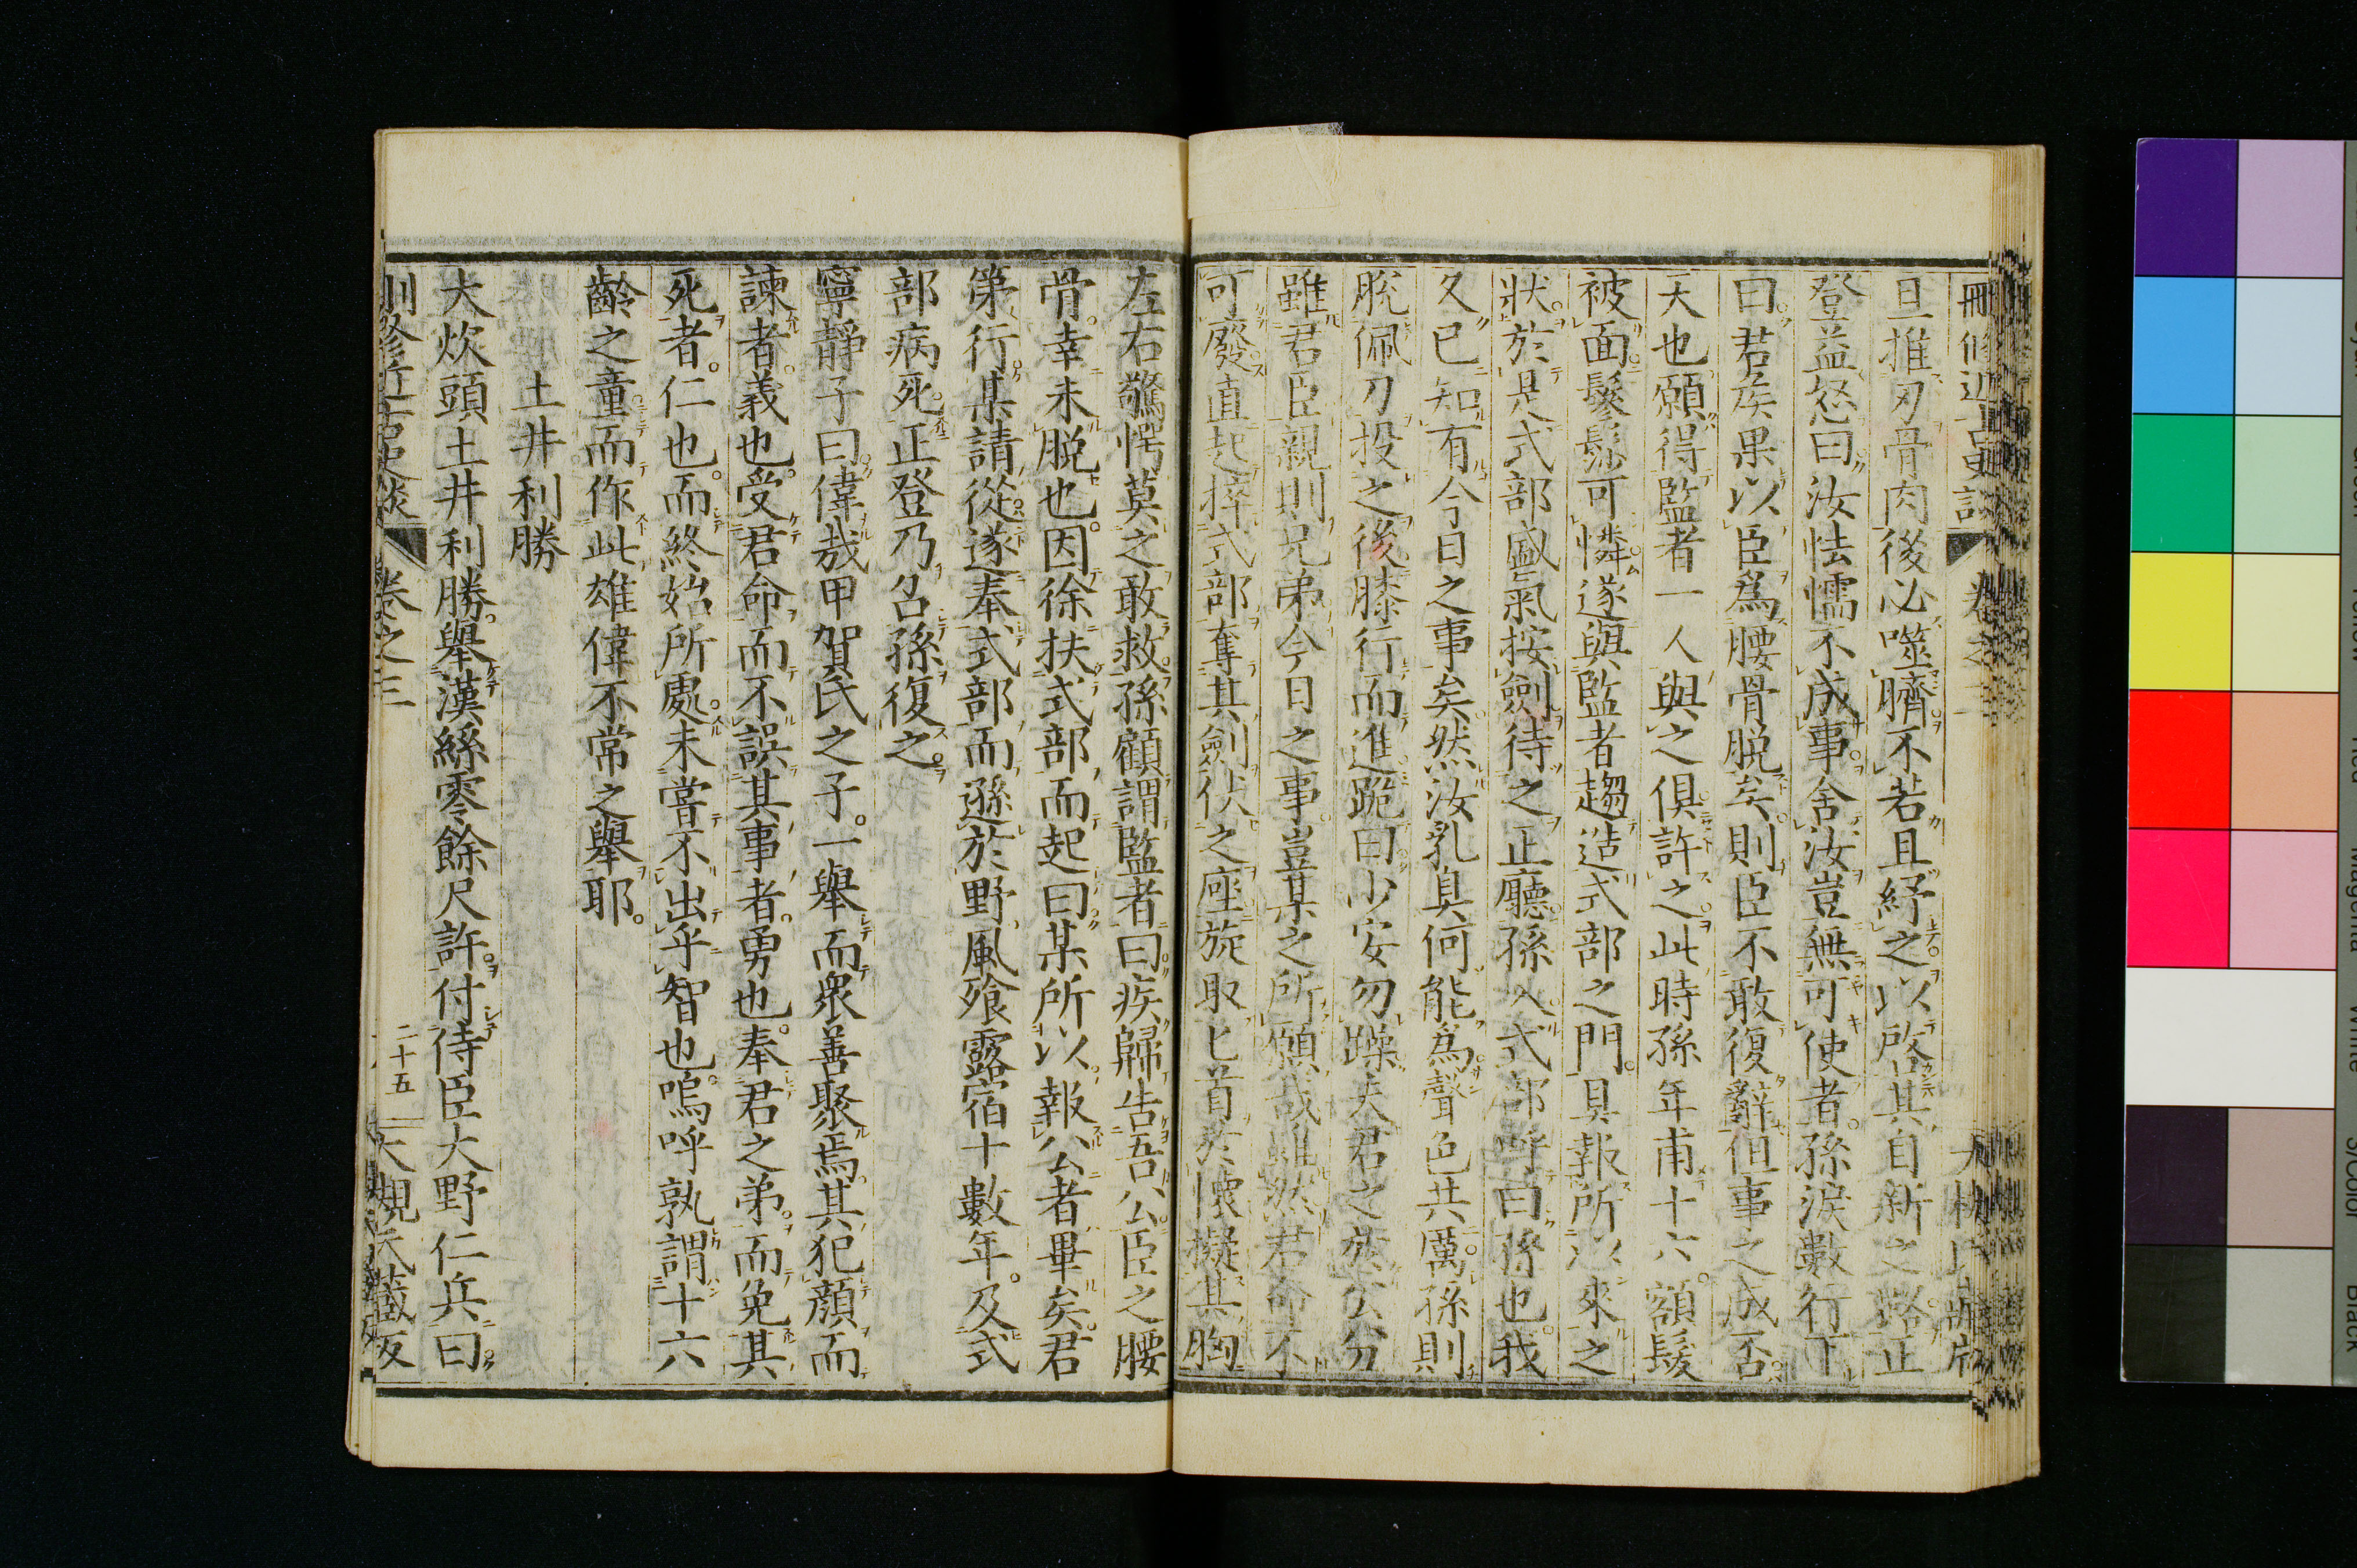 刪修近古史談 卷之三
旦推刃骨肉後必噬臍不若且紓之以啓其自新之路正
登益怒曰汝怯懦不成事舍汝豈無可使者孫淚數行下
曰君侯果以臣爲腰骨脱矣則臣不敢復辭但事之成否
天也願得監者一人與之俱許之此時孫年甫十六額髮
被面鬖髿可憐遂與監者趨造式部之門具報所以來之
狀於是式部盛氣按劍待之正廳孫入式部呼曰孫也我
久已知有今日之事矣然汝乳臭何能爲聲色共厲孫則
脱佩刀投之後膝行而進跪曰少安勿躁夫君之於公分
雖君臣親則兄弟今日之事豈某之所願哉雖然君命不
可廢直起捽式部奪其劍伏之座旋取匕首於懷擬其胸
左右驚愕莫之敢救孫顧謂監者曰疾歸告吾公臣之腰
骨幸未脱也因徐扶式部而起曰某所以報公者畢矣君
第行某請從遂奉式部而遜於野風飱露宿十數年及式
部病死正登乃召孫復之
寧靜子曰偉哉甲賀氏之子一舉而衆善聚焉其犯顔而
諫者義也受君命而不誤其事者勇也奉君之弟而免其
死者仁也而終始所處未嘗不出乎智也嗚呼孰謂十六
齡之童而作此雄偉不常之舉耶
土井利勝
大炊頭土井利勝舉漢絲零餘尺許付侍臣大野仁兵曰
刪修近古史談 卷之三 二十五 大槻氏藏版